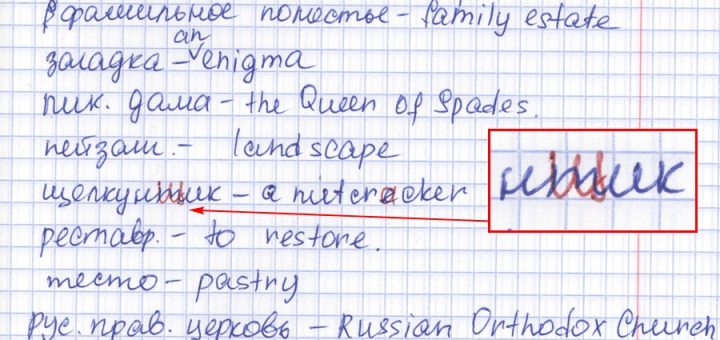 фамильное поместье – family estate
загадка – an enigma
пик. дама – the Queen of Spades.
пейзаж. – landscape
щелкунщик – a nutcracker
нщик
реставр. – to restore.
тесто – pastry
Рус. прав. церковь – Russian Orthodox Church